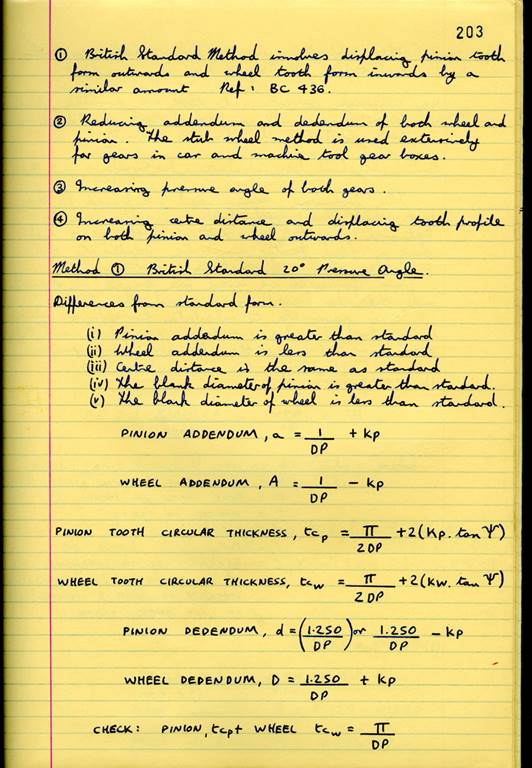 203
① British Standard Method involves displacing pinion tooth
form outwards and wheel tooth form inwards by a
similar amount Ref: BC 436.
② Reducing addendum and dedendum of both wheel and
pinion. The stub wheel method is used extensively
for gears in car and machine tool gear boxes.
③ Increasing pressure angle of both gears.
④ Increasing cetre distance and displacing tooth profile
on both pinion and wheel outwards.
Method ① British Standard 20° Pressure Angle.
Differences from standard form.
(i) Pinion addendum is greater than standard
(ii) Wheel addendum is less than standard
(iii) Centre distance is the same as standard
(iv) The blank diameter of pinion is greater than standard.
(v) The blank diameter of wheel is less than standard.
PINION ADDENDUM, a = 1/DP + Kp
WHEEL ADDENDUM, A = 1/DP - Kp
PINION TOOTH CIRCULAR THICKNESS, tcp = π/2DP + 2(Kp. tan Ψ)
WHEEL TOOTH CIRCULAR THICKNESS, tcw = π/2DP + 2(Kw. tan Ψ)
PINION DEDENDUM, d = (1.250/DP) or 1.250/DP - Kp
WHEEL DEDENDUM, D = 1.250/DP + Kp
CHECK: PINION, tcp + WHEEL tcw = π/DP